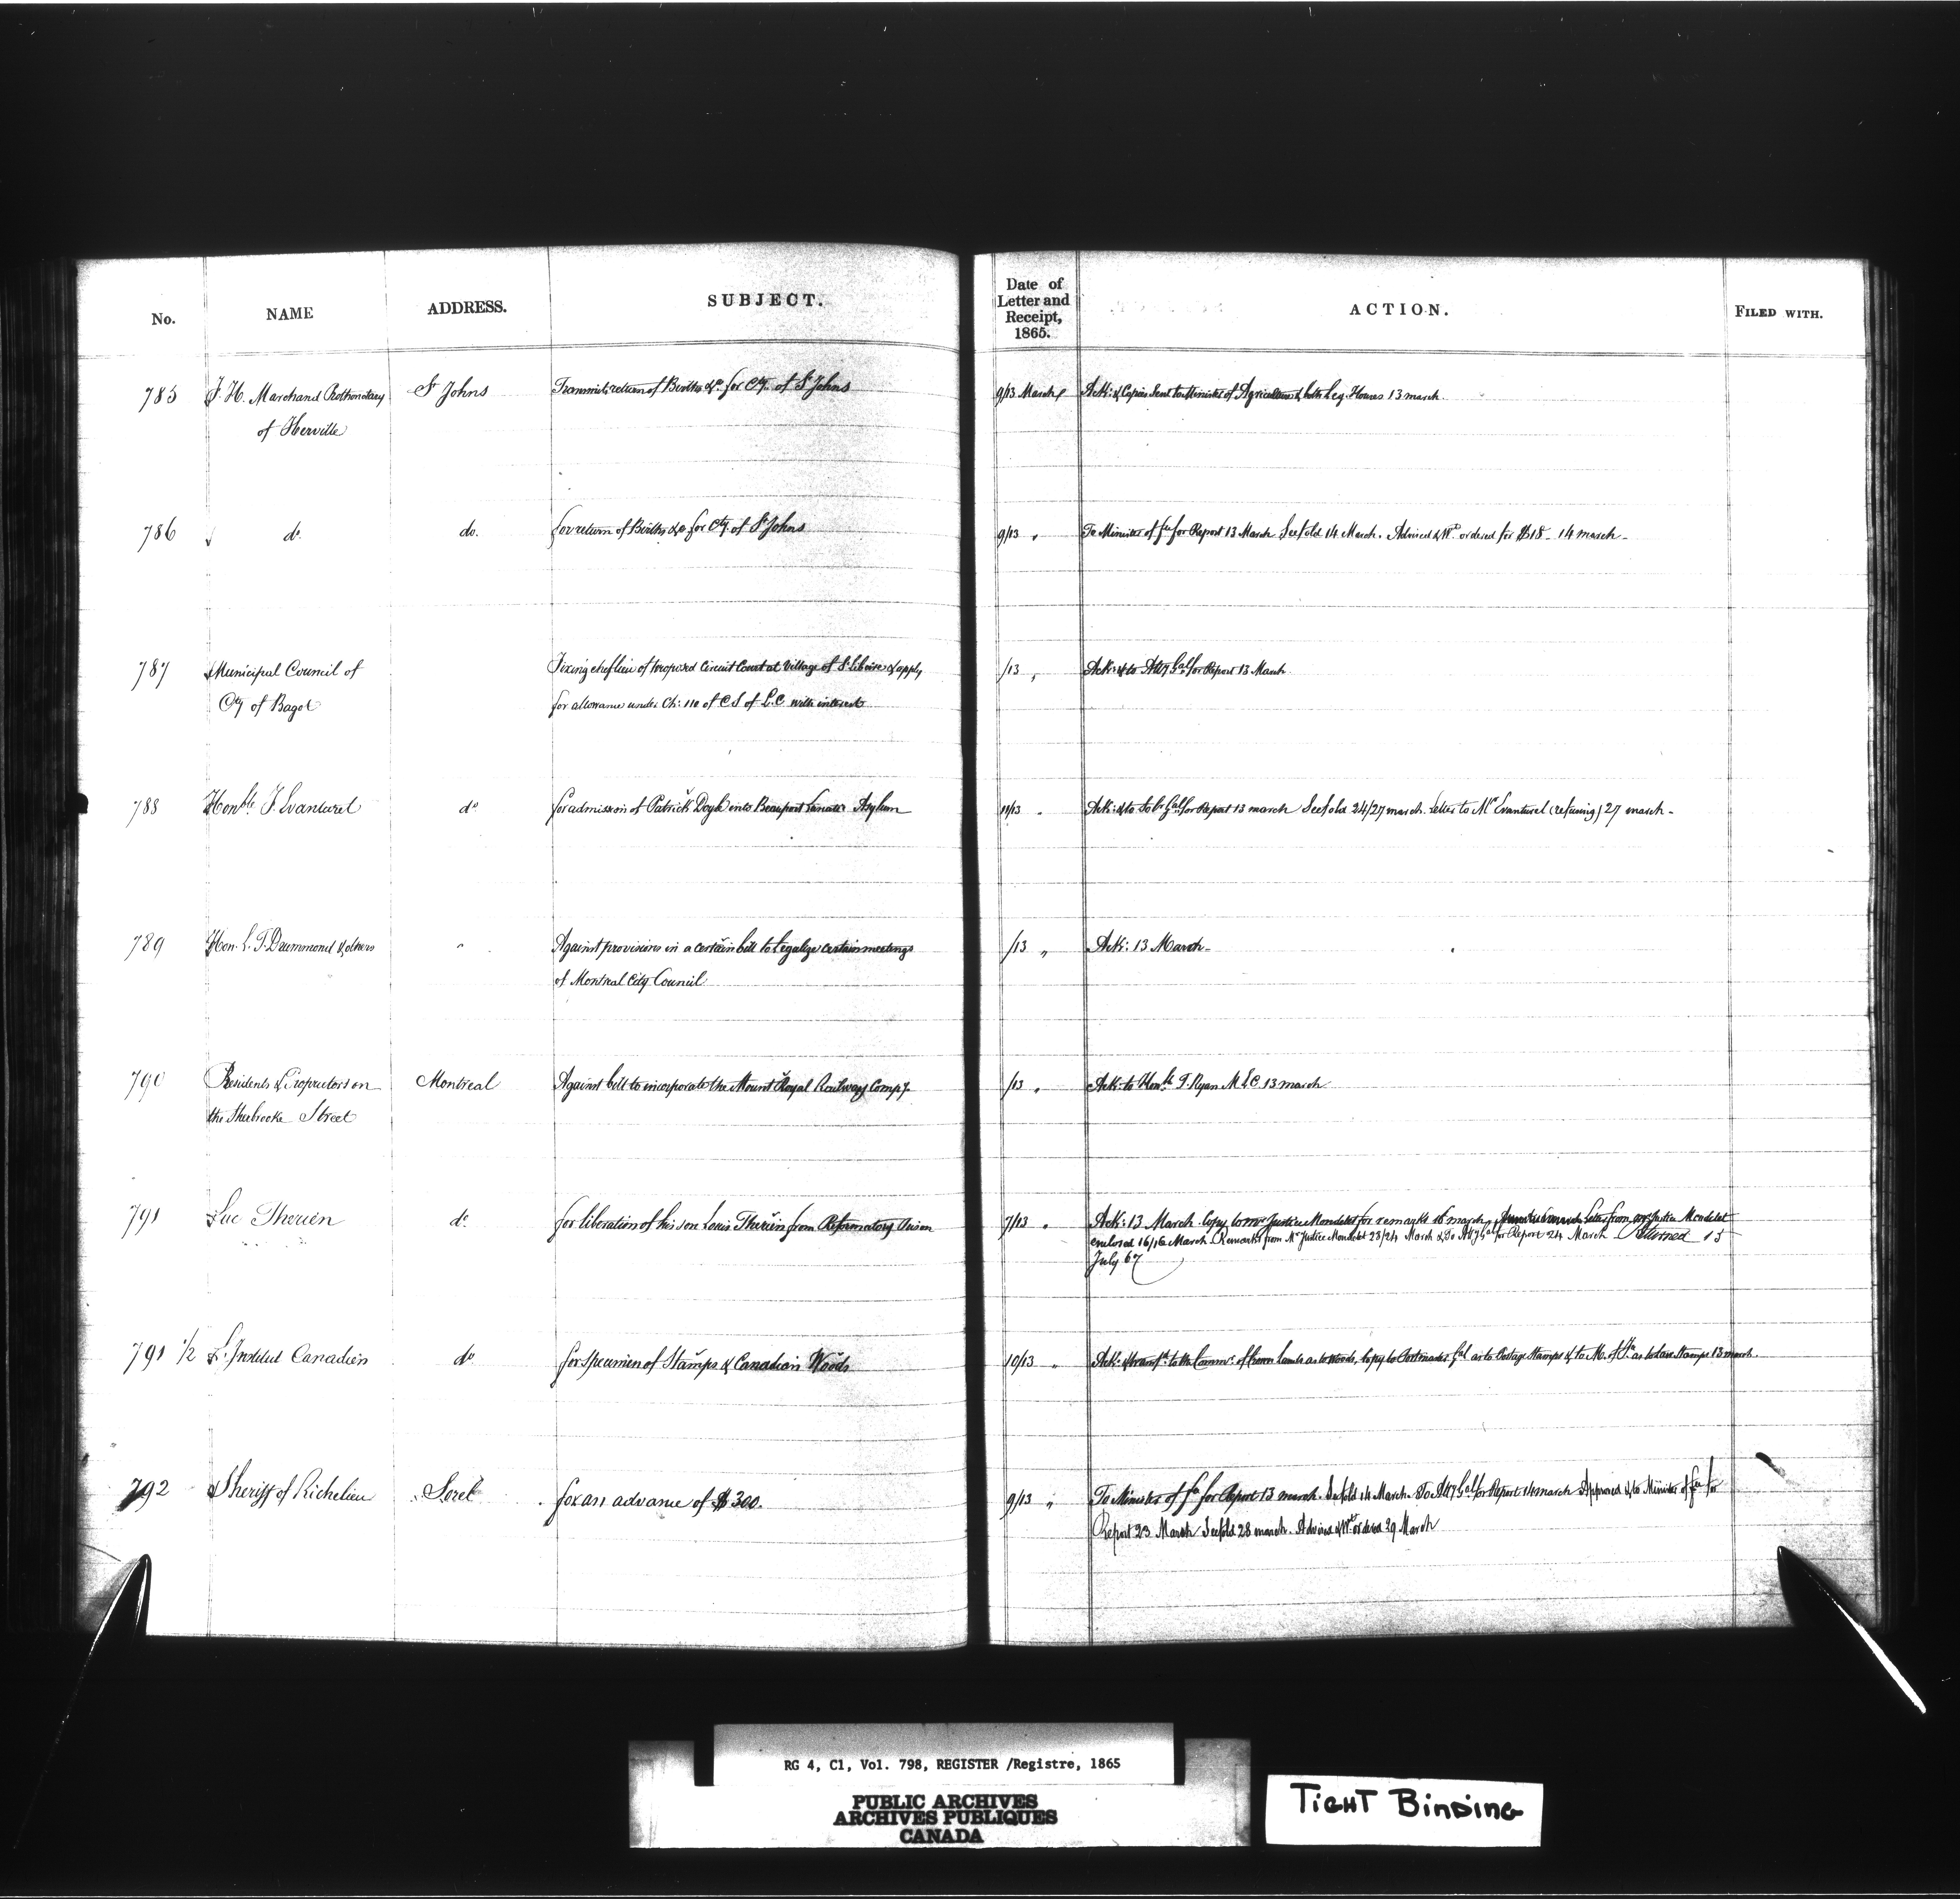 No. NAME ADDRESS. SUBJECT. Date of Letter and Receipt, 1865. ACTION. FILED WITH.
785 J. H. Marchand Prothonotary St Johns Transmits return of Births &c. for Cty. of St Johns 9/13 March Ack: & Copies sent to Minister of Agriculture & both Leg. Houses 13 march
of Iberville
786 do. do. for return of Births &c for Cty. of St Johns 9/13 " To Minister of Fce for Report 13 March See fold 14 March. Advised & Wt ordered for $18 - 14 march -
787 Municipal Council of Fixing chef lieu of proposed Circuit Court at Village of St Liboire & apply /13 " Ack: & to Atty Genl for Report 13 March
Cty of Bagot for allowance under Ch: 110 of C S of L. C with interest
788 Honble F. Evanturel do for admission of Patrick Doyle into Beauport Lunatic Asylum 11/13 " Ack: & to Solr Genl for Report 13 march See fold 24/27 march. Letter to Mr Evanturel (refusing) 27 march -
789 Hon. L. T. Drummond & others " Against provisions in a certain bill to Legalize certain meetings /13 " Ack: 13 March -
of Montreal City Council
790 Residents & Proprietors on Montreal Against bill to incorporate the Mount Royal Railway Compy. /13 " Ack to Honble T. Ryan M L C 13 march
the Sherbrooke Street
791 Luc Therien do. for liberation of his son Louis Therien from Reformatory Prison 7/13 " Ack: 13 March Copy to Mr Justice Mondelet for remarks 16 march, Letter from Mr Justice Mondelet
enclosed 16/16 March. Remarks from Mr Justice Mondelet 23/24 March & To Atty Genl for Report 24 March Returned 13
July 67
791 1/2 L'Institut Canadien do for specimen of Stamps & Canadian Woods 10/13 " Ack: & transfd. to the Commr. of Crown Lands as to woods, Copy to Postmaster Genl as to Postage Stamps & to M. of Fce as to Law Stamps 13 march.
792 Sheriff of Richelieu Sorel for an advance of $300. 9/13 " To Minister of Fce for Report 13 march. See fold 14 March. To Atty Genl for Report 14 march Approved & to Minister of Fce for
Report 23 March See fold 28 march. Advised & Wt ordered 29 March
RG 4, C1, Vol. 798, REGISTER /Registre, 1865
PUBLIC ARCHIVES
ARCHIVES PUBLIQUES
CANADA
TIGHT BINDING